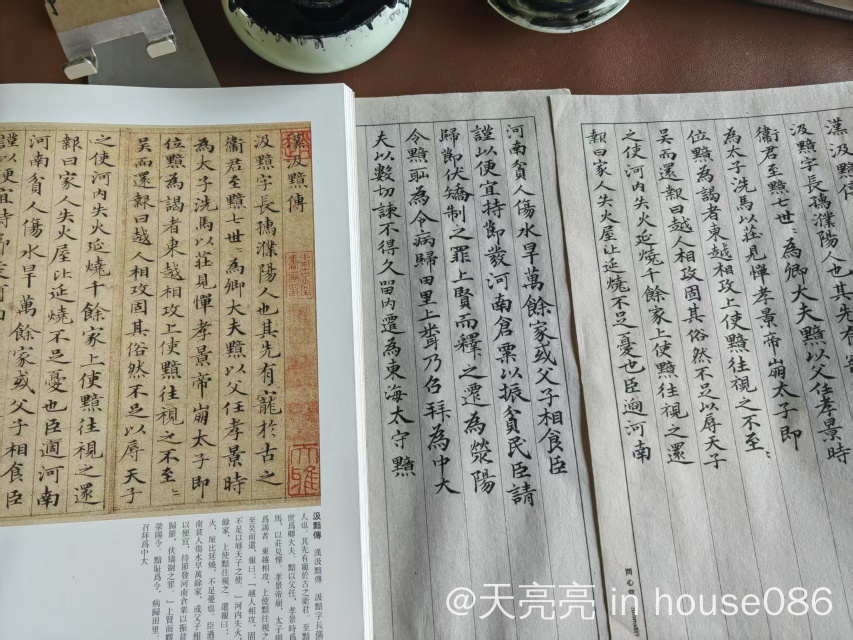 漢汲黯傳
汲黯字長孺濮陽人也其先有寵於古之
衛君至黯七世〻為卿大夫黯以父任孝景時
為太子洗馬以莊見憚孝景帝崩太子即
位黯為謁者東越相攻上使黯往視之不至〻
吳而還報曰越人相攻固其俗然不足以辱天子
之使河內失火延燒千餘家上使黯往視之還
報曰家人失火屋比延燒不足憂也臣適河南
河南貧人傷水旱萬餘家或父子相食臣
謹以便宜持節發河南
汲黯傳 漢汲黯傳 汲黯字長孺
人也,其先有寵於古之衛君,至黯
世爲卿大夫。黯以父任,孝景時爲
馬,以莊見憚。孝景帝崩,太子
爲謁者。東越相攻,上使黯往視之
至吳而還,報曰:「越人相攻,固
不足以辱天子之使。」河內失火,
餘家,上使黯往視之。還報曰:
火,屋比延燒,不足憂也。臣過
南貧人傷水旱萬餘家,或父子相
以便宜,持節發河南倉粟以振
歸節,伏矯制之罪。」上賢而釋
滎陽令。黯恥爲令,病歸田里。
召拜爲中大
河南貧人傷水旱萬餘家或父子相食臣
謹以便宜持節發河南倉粟以振貧民臣請
歸節伏矯制之罪上賢而釋之遷為滎陽
令黯恥為令病歸田里上聞乃召拜為中大
夫以數切諫不得久留內遷為東海太守黯
漢汲黯傳
汲黯字長孺濮陽人也其先有
衛君至黯七世〻為卿大夫黯以父任孝景時
為太子洗馬以莊見憚孝景帝崩太子即
位黯為謁者東越相攻上使黯往視之不至〻
吳而還報曰越人相攻固其俗然不足以辱天子
之使河內失火延燒千餘家上使黯往視之還
報曰家人失火屋比延燒不足憂也臣過河南
@天亮亮 in house086